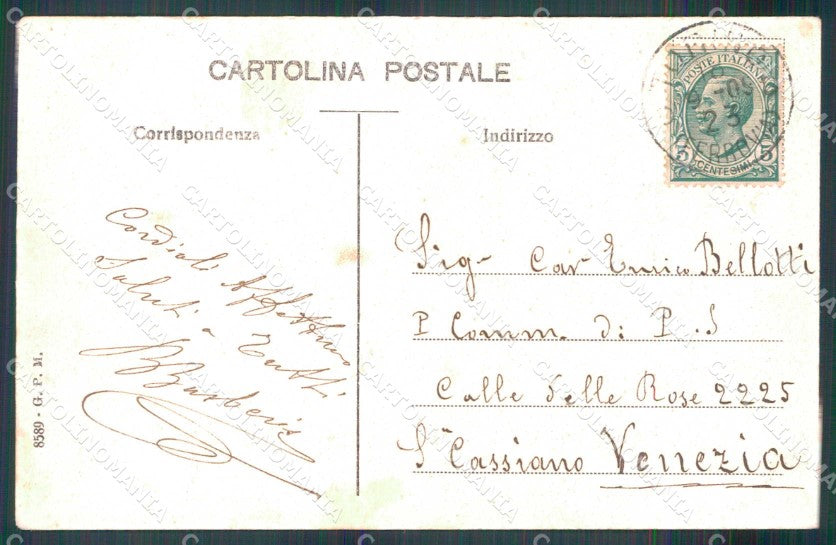 CARTOLINA POSTALE
Corrispondenza
Indirizzo
POSTE ITALIANE
5 CENTESIMI 5
9 - 09
23
FERROVIA
Cordiali Affettuosi
Saluti a Tutti
Sig Cav Enrico Bellotti
P Comm. di P.S
Calle delle Rose 2225
S. Cassiano Venezia
8589 - G. P. M.
CARTOLINOMANIA